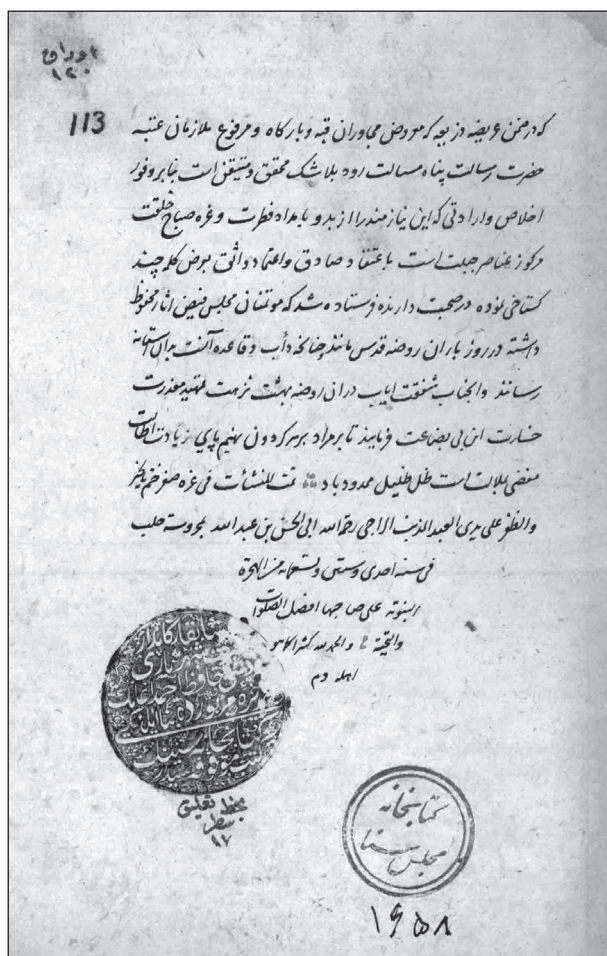 اوراق
۱۲۰
113
که در ضمن عریضه ذریعه که معروض مجاوران قبه و بارکاه و مرفوع ملازمان عتبه
حضرت رسالت پناه مسالت رود بلاشک محقق و متیقن است بنابر وفور
اخلاص و ارادتی که این نیازمند را از بدو بامداد فطرت و غره صباح خلقت
مرکوز عناصر جبلت است باعتقاد صادق و اعتماد واثق بعرض کلمه چند
کستاخی نموده در صحبت دارنده فرستاده شد که موتمنان مجلس فیض آثار محفوظ
داشته در روز باران روضه قدس مانند چنانکه دأب و قاعده آنست بدان آستانه
رسانند و آنجناب شفقت ایاب در آن روضه بهشت نزهت تمهید معذرت
جسارت این بی بضاعت فرمایند تا بر مراد بر سر کردون نهیم پای زیادت اطالت
مفضی بملالت است ظل ظلیل ممدود باد تمت المنشآت فی غره صفر ختم بالخیر
والظفر علی یدی العبد المذنب الراجی رحمة الله ابی الحسن بن عبد الله بمحروسة حلب
فی سنه احدی وستین وتسعمائه من الهجرة
النبویه علی صاحبها افضل الصلوات
والتحیة والحمد لله کثیرا کما هو
اهله
بخط تعلیق
سطر
۱۷
کتابخانه
مجلس سنا
۱۶۵۸